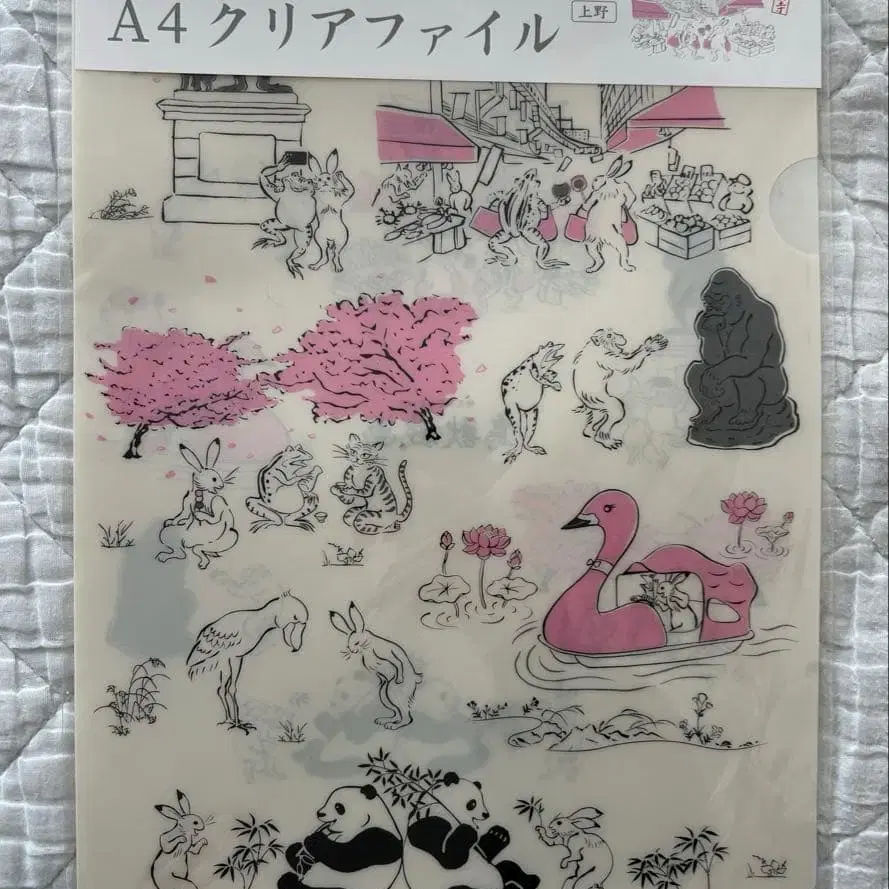 A4クリアファイル
上野